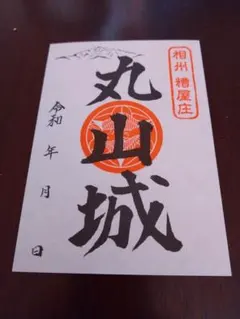 相州 糟屋庄
丸山城
令和 年 月 日